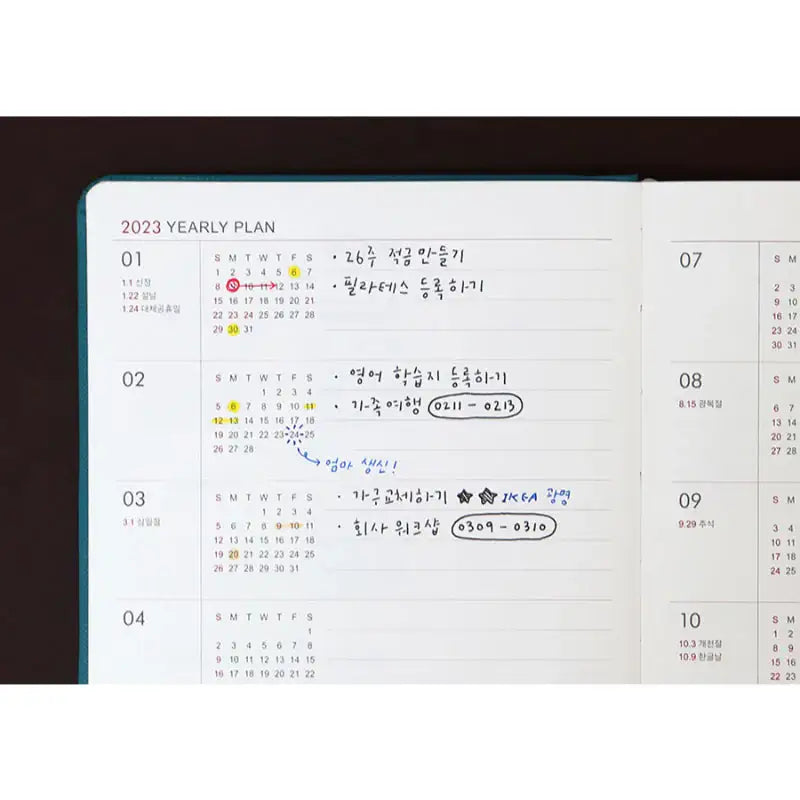 2023 YEARLY PLAN
01
1.1 신정
1.22 설날
1.24 대체공휴일
S M T W T F S
1 2 3 4 5 6 7
8 9 10 11 12 13 14
15 16 17 18 19 20 21
22 23 24 25 26 27 28
29 30 31
· 26주 적금 만들기
· 필라테스 등록하기
02
S M T W T F S
1 2 3 4
5 6 7 8 9 10 11
12 13 14 15 16 17 18
19 20 21 22 23 24 25
26 27 28
· 영어 학습지 등록하기
· 가족여행 0211 - 0213
엄마 생신!
03
3.1 삼일절
S M T W T F S
1 2 3 4
5 6 7 8 9 10 11
12 13 14 15 16 17 18
19 20 21 22 23 24 25
26 27 28 29 30 31
· 가구교체하기 ★★ IKEA 광명
· 회사 워크샵 0309 - 0310
04
S M T W T F S
1
2 3 4 5 6 7 8
9 10 11 12 13 14 15
16 17 18 19 20 21 22
07
S M
2 3
9 10
16 17
23 24
30 31
08
8.15 광복절
S M
6 7
13 14
20 21
27 28
09
9.29 추석
S M
3 4
10 11
17 18
24 25
10
10.3 개천절
10.9 한글날
S M
1 2
8 9
15 16
22 23